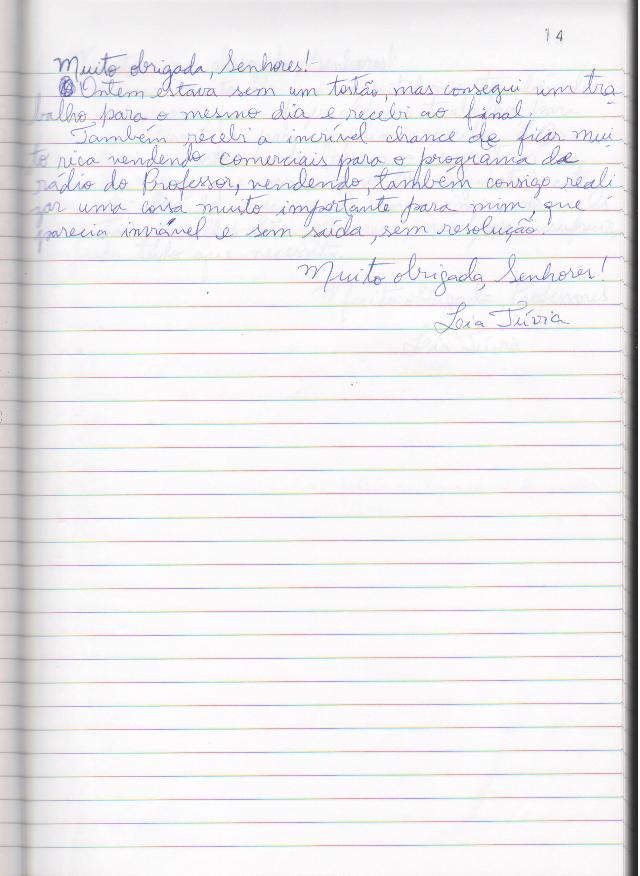 14
Muito obrigada, Senhores!
Ontem estava sem um tostão, mas consegui um tra-
balho para o mesmo dia e recebi ao final!
Também recebi a incrível chance de ficar mui-
to rica vendendo comerciais para o programa de
rádio do Professor, vendendo, também consigo reali
zar uma coisa muito importante para mim, que
parecia inviável e sem saída, sem resolução
Muito obrigada, Senhores!
Leia Túvia